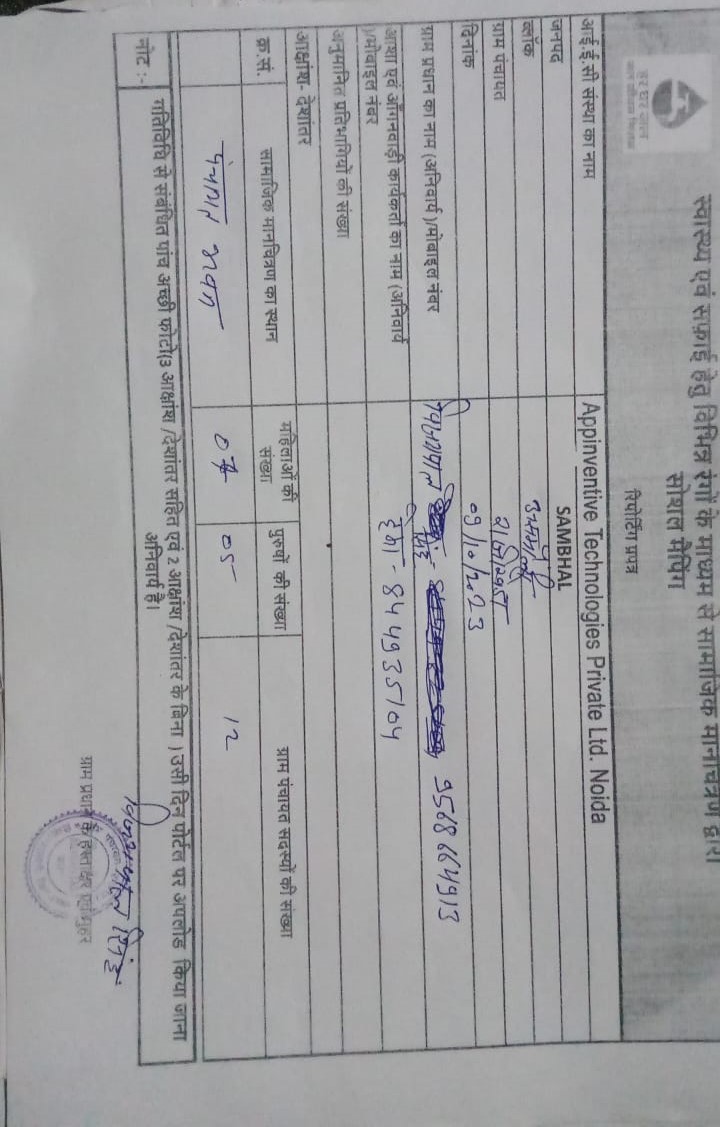 स्वास्थ्य एवं सफाई हेतु विभिन्न रंगों के माध्यम से सामाजिक मानचित्रण द्वारा
सोशल मैपिंग
रिपोर्टिंग प्रपत्र
हर घर जल
जल जीवन मिशन
आई.ई.सी संस्था का नाम Appinventive Technologies Private Ltd. Noida
जनपद SAMBHAL
ब्लॉक
ग्राम पंचायत
दिनांक 09/10/2023
ग्राम प्रधान का नाम (अनिवार्य )/मोबाइल नंबर सिंह 9568664913
आशा एवं आँगनवाड़ी कार्यकर्ता का नाम (अनिवार्य
)/मोबाइल नंबर हेमा 844935104
अनुमानित प्रतिभागियों की संख्या
आक्षांश- देशांतर
क्र.सं. सामाजिक मानचित्रण का स्थान महिलाओं की संख्या पुरुषों की संख्या ग्राम पंचायत सदस्यों की संख्या
पंचायत भवन 07 05 12
नोट :- गतिविधि से संबंधित पांच अच्छी फोटो(3 आक्षांश /देशांतर सहित एवं 2 आक्षांश /देशांतर के बिना ) उसी दिन पोर्टल पर अपलोड किया जाना
अनिवार्य है।
सिंह
ग्राम प्रधान के हस्ताक्षर एवं मुहर